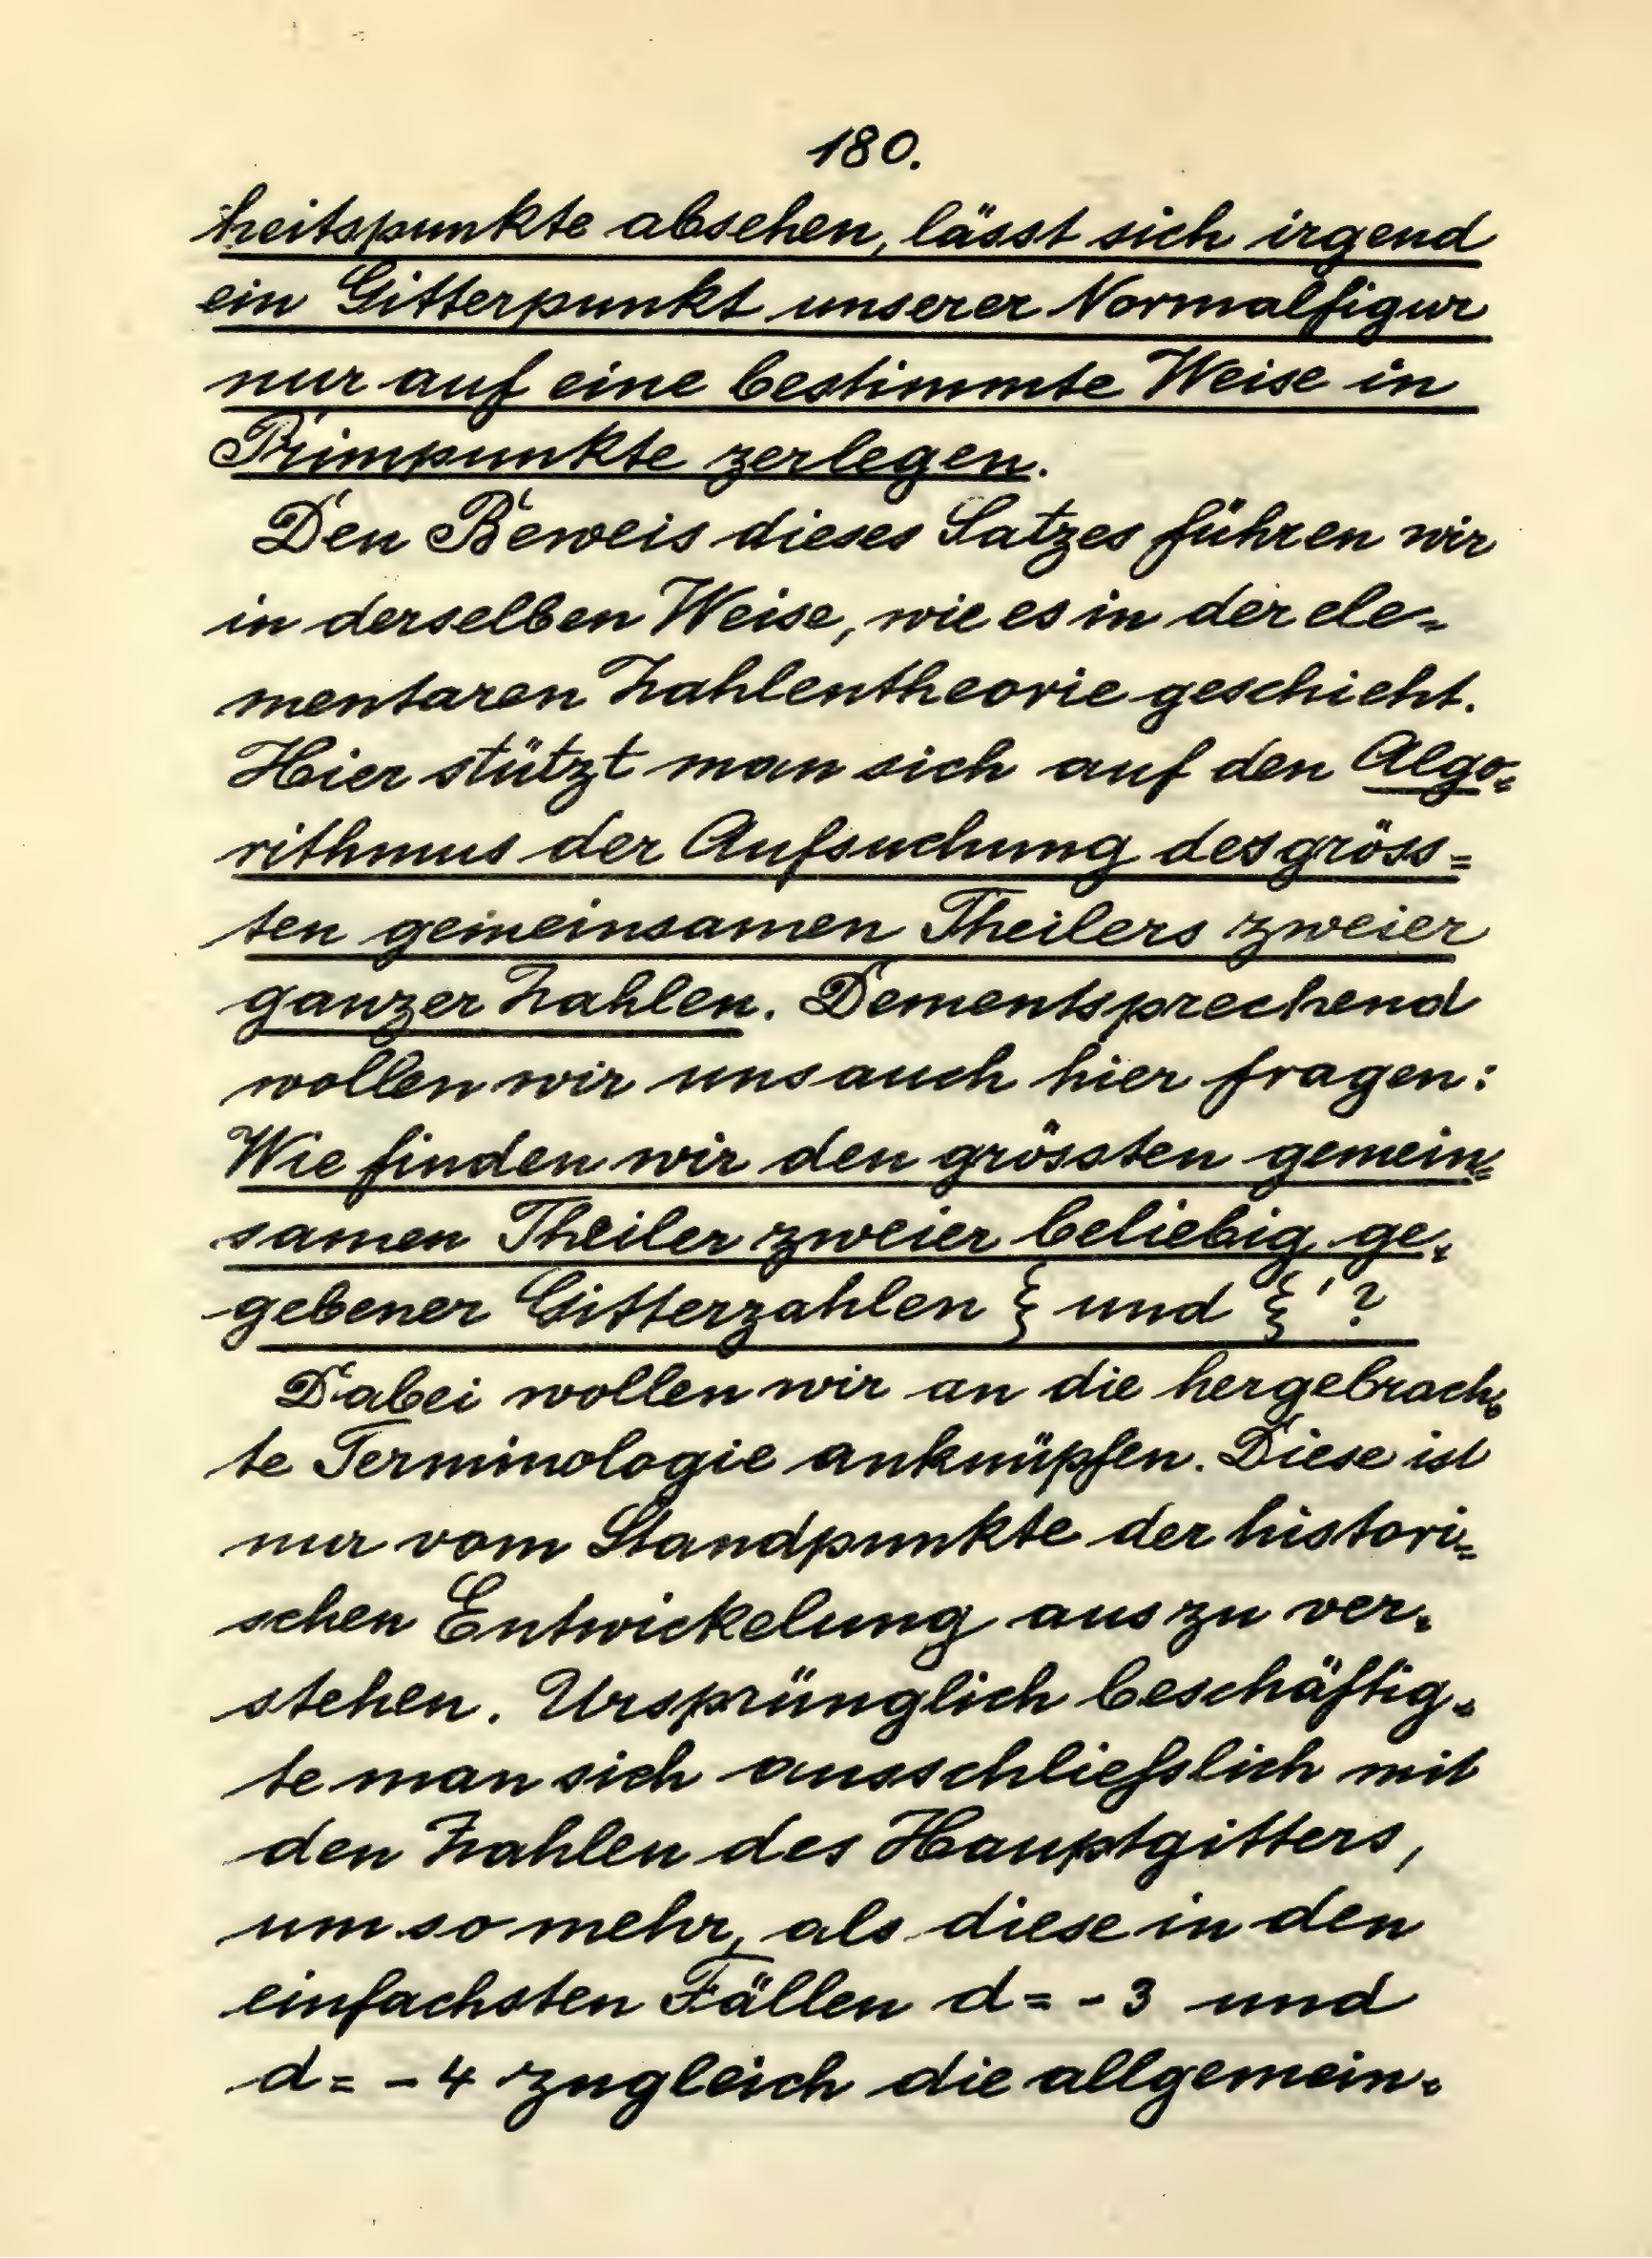 180.
heitspunkte absehen, lässt sich irgend
ein Gitterpunkt unserer Normalfigur
nur auf eine bestimmte Weise in
Primpunkte zerlegen.
Den Beweis dieses Satzes führen wir
in derselben Weise, wie es in der ele-
mentaren Zahlentheorie geschieht.
Hier stützt man sich auf den Algo-
rithmus der Aufsuchung des gröss-
ten gemeinsamen Theilers zweier
ganzer Zahlen. Dementsprechend
wollen wir uns auch hier fragen:
Wie finden wir den grössten gemein-
samen Theiler zweier beliebig ge-
gebener Gitterzahlen ξ und ξ'?
Dabei wollen wir an die hergebrach-
te Terminologie anknüpfen. Diese ist
nur vom Standpunkte der histori-
schen Entwickelung aus zu ver-
stehen. Ursprünglich beschäftig-
te man sich ausschliefslich mit
den Zahlen des Hauptgitters,
um so mehr, als diese in den
einfachsten Fällen d = -3 und
d = -4 zugleich die allgemein-